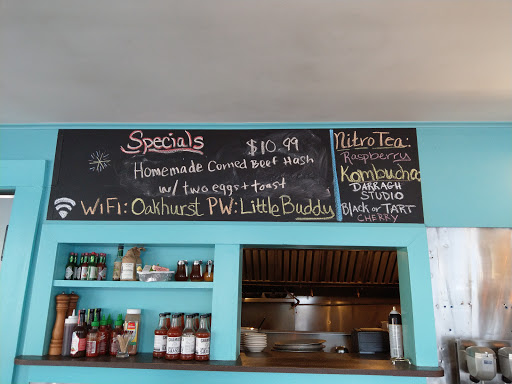 Specials
$10.99
Homemade Corned Beef Hash
w/ two eggs + toast
WIFI: Oakhurst PW: Little Buddy
Nitro Tea:
Raspberry
Kombucha
DARRAGH
STUDIO
Black or TART
CHERRY